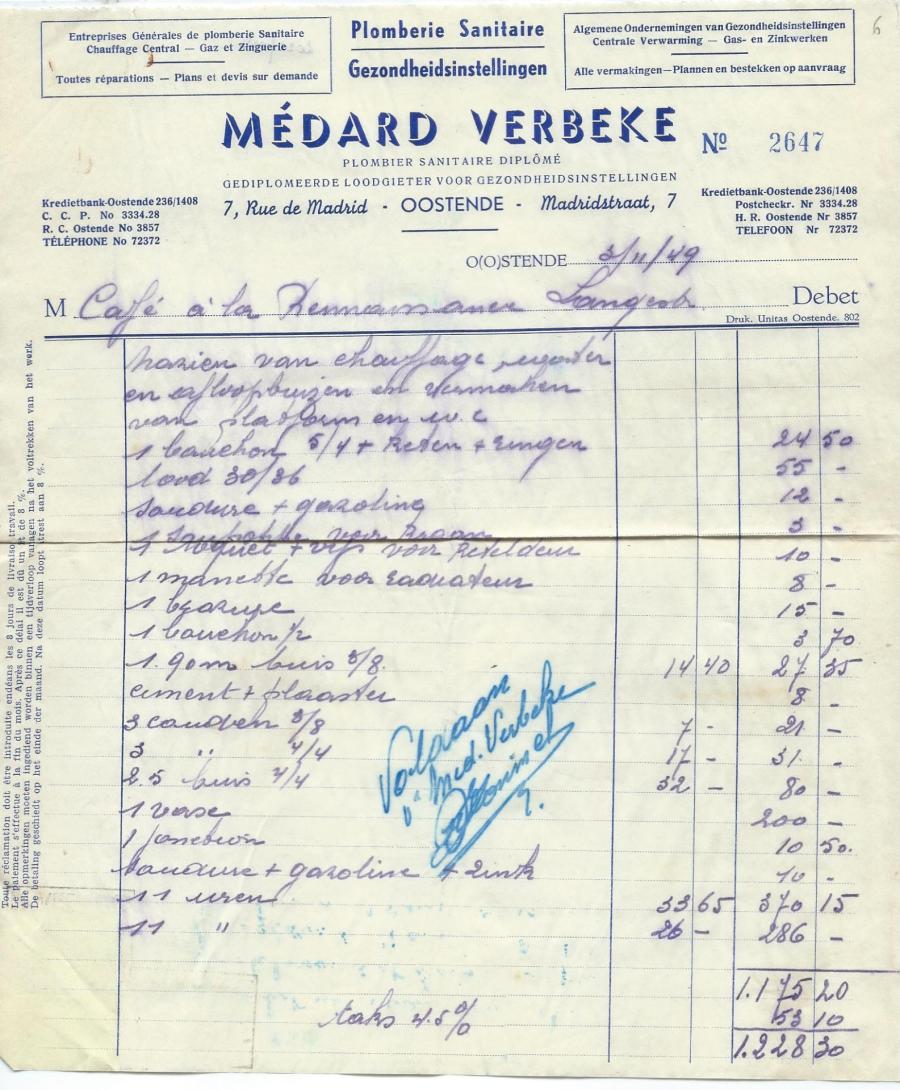 6
Entreprises Générales de plomberie Sanitaire
Chauffage Central — Gaz et Zinguerie
Toutes réparations — Plans et devis sur demande
Plomberie Sanitaire
Gezondheidsinstellingen
Algemene Ondernemingen van Gezondheidsinstellingen
Centrale Verwarming — Gas- en Zinkwerken
Alle vermakingen — Plannen en bestekken op aanvraag
MÉDARD VERBEKE
Nº 2647
PLOMBIER SANITAIRE DIPLÔMÉ
GEDIPLOMEERDE LOODGIETER VOOR GEZONDHEIDSINSTELLINGEN
7, Rue de Madrid - OOSTENDE - Madridstraat, 7
Kredietbank-Oostende 236/1408
C. C. P. No 3334.28
R. C. Ostende No 3857
TÉLÉPHONE No 72372
Kredietbank-Oostende 236/1408
Postcheckr. Nr 3334.28
H. R. Oostende Nr 3857
TELEFOON Nr 72372
O(O)STENDE 3/11/49
M Café à la Rennaissance Langestr Debet
Druk. Unitas Oostende. 802
Nazien van chauffage, water
en afloopbuizen en vermaken
van plafond en w.c
1 bouchon 5/4 + Keten + ringen 24 50
lood 30/36 55 -
soudure + gazoline 12 -
voor Kraan 3 -
1 + vijs voor Keteldeur 10 -
1 manette voor radiateur 8 -
1 15 -
1 bouchon 1/2 3 70
1.90m buis 3/8. 14 40 27 35
ciment + plaaster 8 -
3 couden 3/8 7 - 21 -
3 " 4/4 17 - 31. -
2.5 buis 4/4 32 - 80 -
1 vase 200 -
1 10 50.
soudure + gazoline + zink 10 -
11 uren 33 65 370 15
11 " 26 - 286 -
1.175 20
taks 4.5% 53 10
1.228 30
Voldaan
Med. Verbeke
Toute réclamation doit être introduite endéans les 8 jours de livraison travail.
Le paiement s'effectue à la fin du mois. Après ce délai il est dû un int de 8 %.
Alle opmerkingen moeten ingediend worden binnen een tijdverloop van dagen na het voltrekken van het werk.
De betaling geschiedt op het einde der maand. Na deze datum loopt intrest aan 8 %.